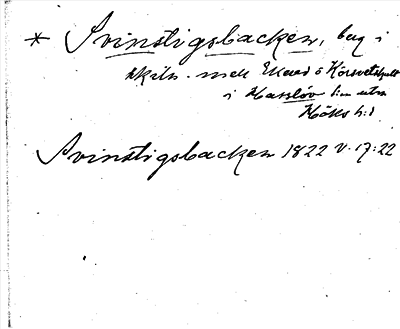 * Svinstigsbacken, bag i
skiln. mell Ekered o Körsvetshult
i Hasslöv s:n utm
Höks h:d
Svinstigsbacken 1822 V. 17:22